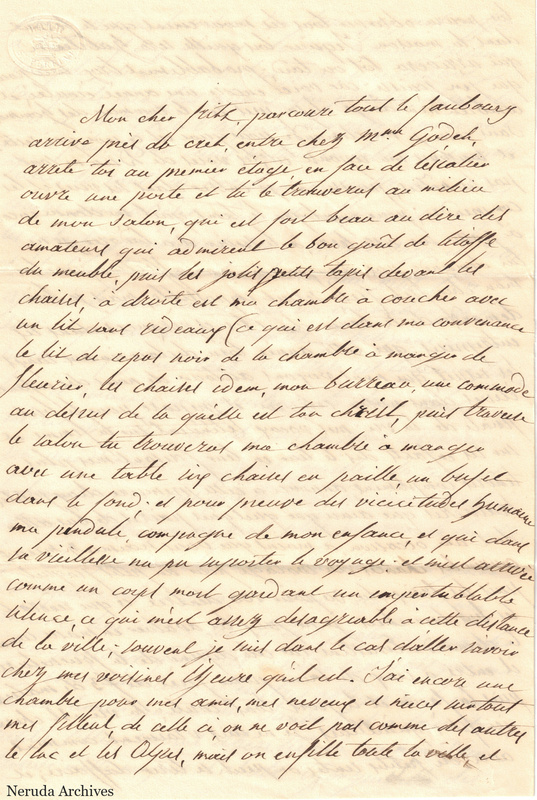 Mon cher fritz, parcoure tout le faubourg
arrive près du cret, entre chez Mme Godet,
arrete toi au premier étage, en face de l'éscalier
ouvre une porte et tu te trouveras au milieu
de mon salon, qui est fort beau au dire des
amateurs qui admirent le bon goût de l'étoffe
du meuble, puis les jolis petits tapis devant les
chaises; à droite est ma chambre à coucher avec
un lit sans rideaux (ce qui est dans ma convenance
le lit de repos noir de la chambre à manger de
fleurier, les chaises idem, mon burreau, une commode
au dessus de la quelle est ton christ, puis traverse
le salon tu trouveras ma chambre à manger
avec une table six chaises en paille, un bufet
dans le fond; et pour preuve des vicicitudes humaine
ma pendule, compagne de mon enfance, et qui dans
sa vieillesse na pu suporter le voyage; et m'est arrivée
comme un corps mort gardant un imperturblable
silence, ce qui m'est assez desagreable à cette distance
de la ville; souvent je suis dans le cas d'aller savoir
chez mes voisines l'heure qu'il est. J'ai encore une
chambre pour mes amis, mes neveux et nieces surtout
mes filleul, de celle ci, on ne voit pas comme des autres
le lac et les Alpes, mais on enfille toute la ville, et
Neruda Archives